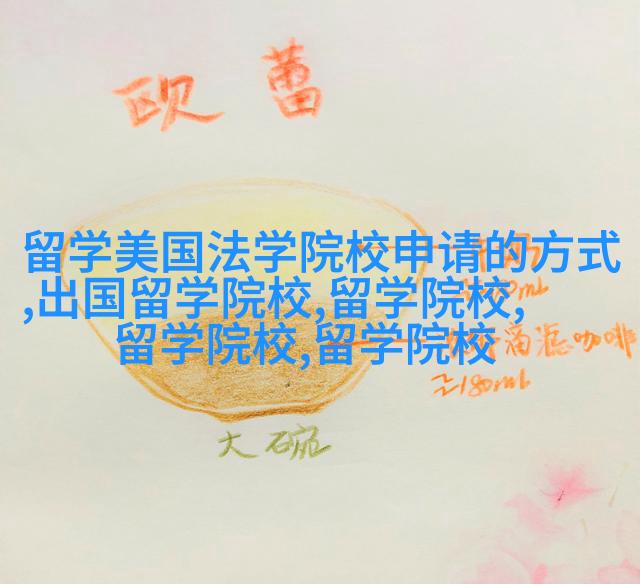 欧蕾
留学美国法学院校申请的方式
,出国留学院校,留学院校,
留学院校,留学院校
滴滤咖啡
≥180mL
大碗